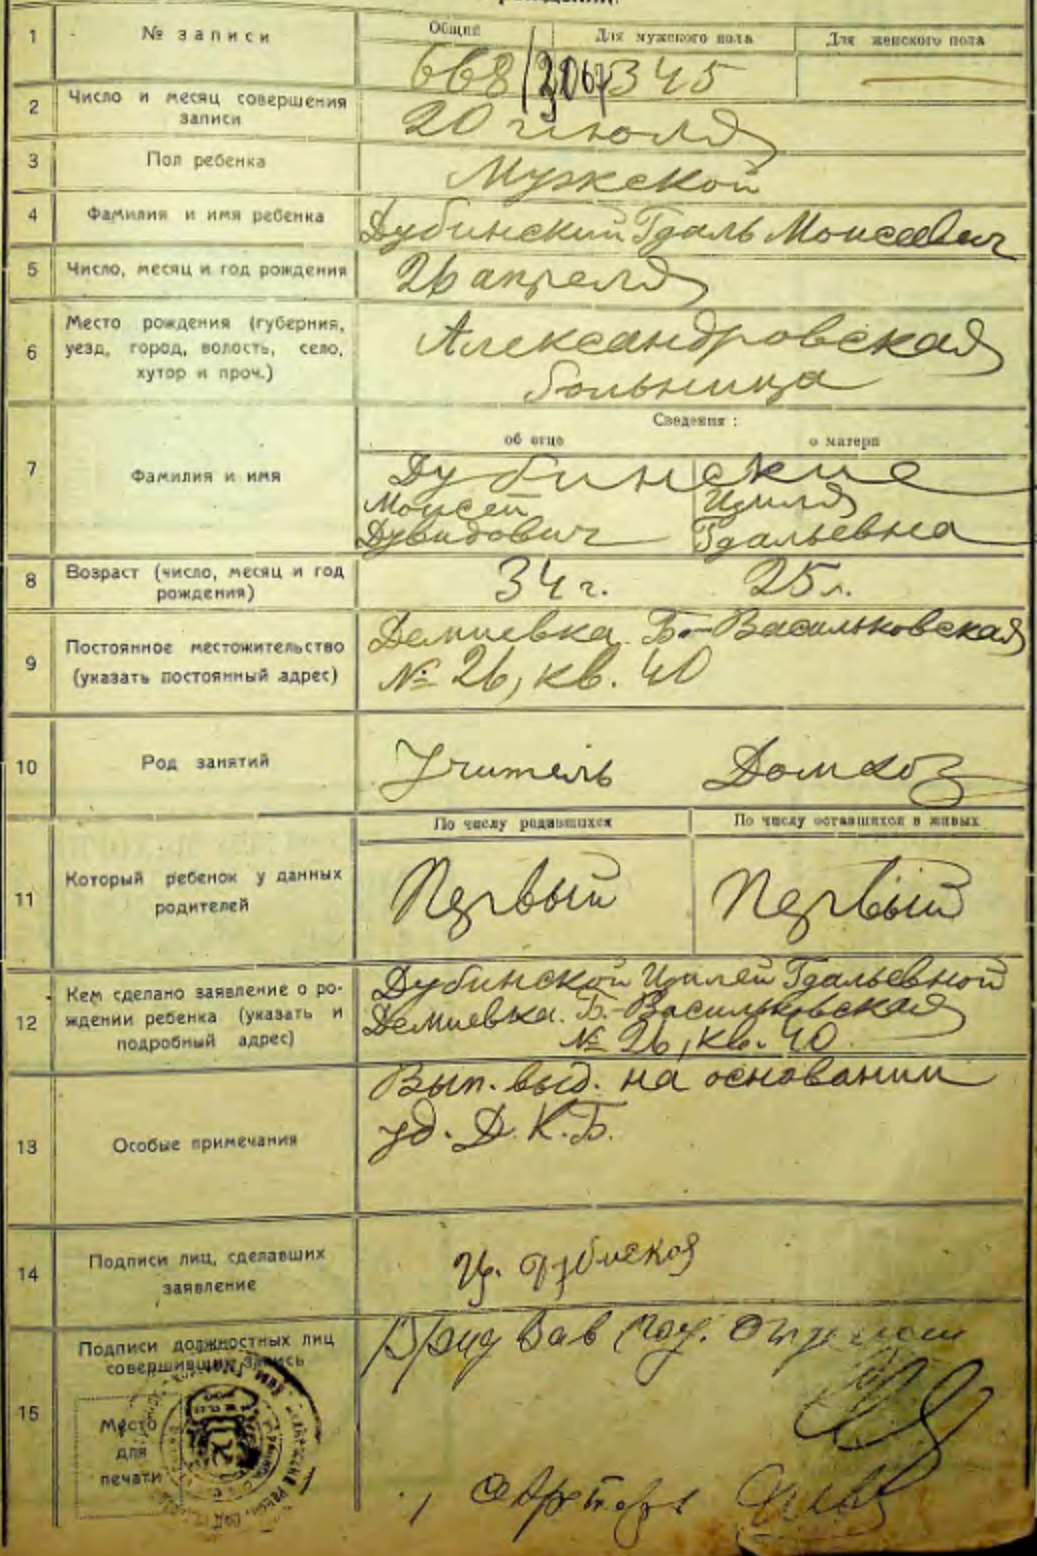 рождении.
1
№ записи
Общий
Для мужского пола
Для женского пола
668/206/
345
—
2
Число и месяц совершения
записи
20 июля
3
Пол ребенка
Мужской
4
Фамилия и имя ребенка
Дубинский Гдаль Моисеевич
5
Число, месяц и год рождения
26 апреля
6
Место рождения (губерния,
уезд, город, волость, село,
хутор и проч.)
Александровская
больница
7
Фамилия и имя
Сведения :
об отце
о матери
Дубинские
Моисей
Дувидович
Цзиля
Гдальевна
8
Возраст (число, месяц и год
рождения)
34 г.
25 л.
9
Постоянное местожительство
(указать постоянный адрес)
Демиевка. Б.-Васильковская
№ 26, кв. 40
10
Род занятий
Учитель
Домхоз
11
Который ребенок у данных
родителей
По числу родившихся
По числу оставшихся в живых
Первый
Первый
12
Кем сделано заявление о ро-
ждении ребенка (указать и
подробный адрес)
Дубинской Цзилей Гдальевной
Демиевка. Б.-Васильковская
№ 26, кв. 40.
13
Особые примечания
Вып. выд. на основании
уд. Д. К. Б.
14
Подписи лиц, сделавших
заявление
Ц. Дубинская
15
Подписи должностных лиц
совершивших запись
Место
для
печати
Зав
Секретарь